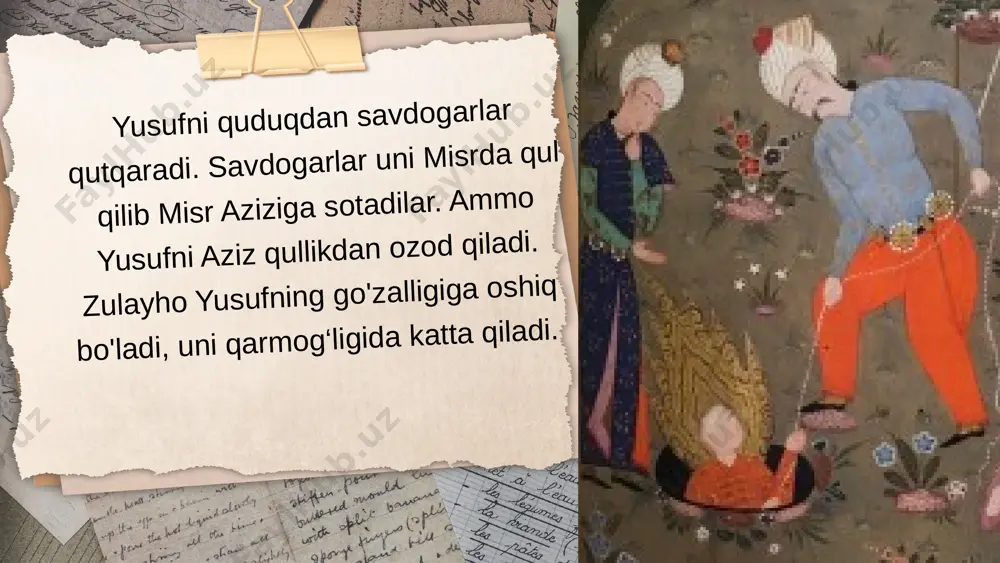 Yusufni quduqdan savdogarlar
qutqaradi. Savdogarlar uni Misrda qul
qilib Misr Aziziga sotadilar. Ammo
Yusufni Aziz qullikdan ozod qiladi.
Zulayho Yusufning go'zalligiga oshiq
bo'ladi, uni qarmog‘ligida katta qiladi.
FaylHub.uz